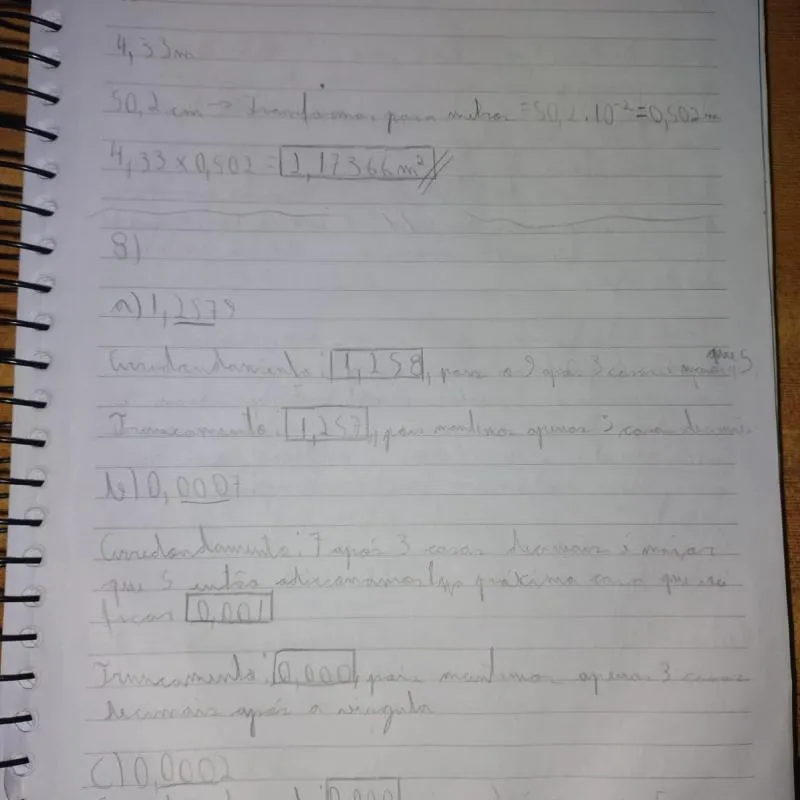 4,33m
50,2 cm → transformar para metros = 50,2 . 10⁻² = 0,502 m
4,33 x 0,502 = 2,17366 m²
8)
a) 1,2579
Arredondamento: 1,258, pois o 9 após 3 casas é maior que 5
Truncamento: 1,257, pois mantemos apenas 3 casas decimais
b) 0,0007
Arredondamento: 7 após 3 casas decimais é maior
que 5 então adicionamos 1 na próxima casa que irá
ficar 0,001
Truncamento: 0,000, pois mantemos apenas 3 casas
decimais após a virgula
c) 0,0002
0,000